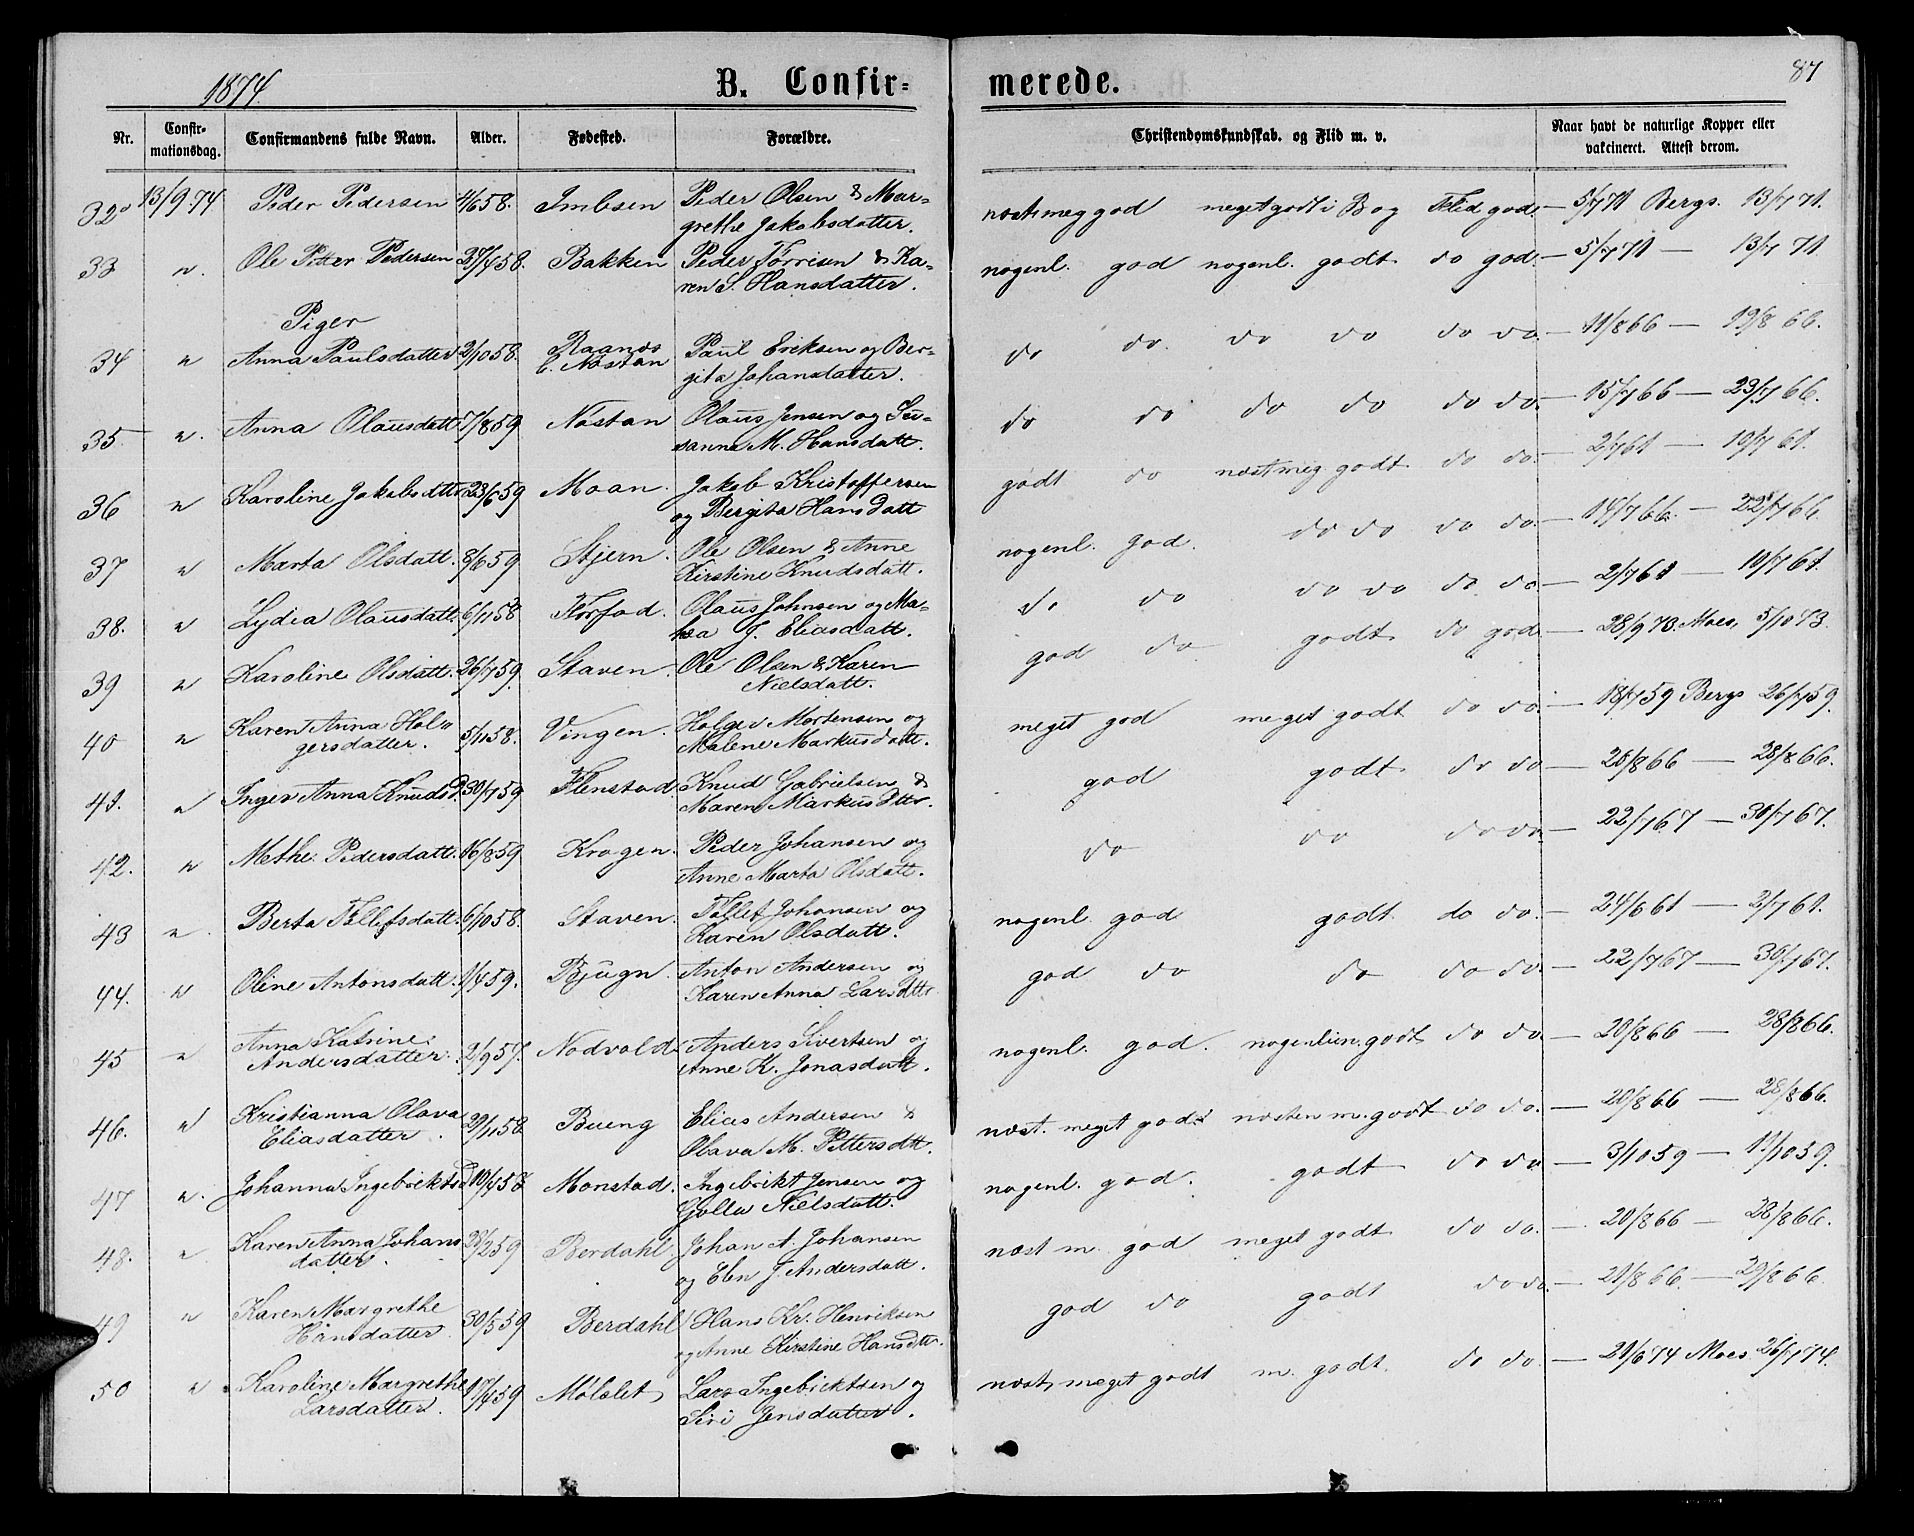 1874.
B. Confir-
merede.
87
Nr.
Confir-
mationsdag.
Confirmandens fulde Navn.
Alder.
Fødested.
Forældre.
Christendomskundskab. og Flid m. v.
Naar havt de naturlige Kopper eller
vakcineret. Attest derom.
32 13/9 74. Peder Pedersen 4/6 58. Imbsen Peder Olsen & Mar-
grethe Jakobsdatter.
næst meg god meget godt i Bog Flid god — 5/7 71 Bergs. 13/7 71.
33 " Ole Petter Pedersen 27/4 58. Bakken Peder Törrisen & Ka-
ren S. Hansdatter.
nogenl. god nogenl. godt do god — 5/7 71 — 13/7 71
Piger
34 " Anna Paulsdatter 2/10 58. Raanæs Paul Eriksen og Ber-
Nöstan gita Johansdatter.
do do. do do do do — 11/8 66 — 19/8 66.
35 " Anna Olausdatt. 7/8 59 Nöstan Olaus Jensen og Su-
sanna M. Hansdatt.
do do do do do do — 15/7 66 — 23/7 66.
36 " Karoline Jakobsdttr 23/6 59 Moan. Jakob Kristoffersen
og Bergita Hansdatt
godt do næst meg godt do do — 2/7 61 — 10/7 61.
37 " Marta Olsdatt. 8/6 59 Stjern. Ole Olsen & Anne
Kirstine Knudsdatt.
nogenl. god. do do do do — 14/7 66 — 22/7 66
38. " Lydia Olausdatt. 6/11 58 Olaus Johnsen og Ma-
J. Eliasdatt.
do do do do do do — 2/7 61 — 10/7 61.
39 " Karoline Olsdatt. 26/7 59. Staven. Ole Olsen & Karen
Nielsdatt.
god do godt do god — 28/9 73. Moes, 5/10 73.
40 " Karen Anna Hol-
gersdatter. 5/11 58. Vingen. Holger Mortensen og
Malene Markusdatt.
meget god meget godt do do — 18/7 59 Bergs 26/7 59.
41. " Inger Anna Knudsd. 30/7 59 Flenstad. Knud Gabrielsen &
Maren Markusdttr.
god godt do do — 20/8 66 — 28/8 66.
42. " Methe Pedersdatt. 16/8 59 Krogen. Peder Johansen og
Anne Marta Olsdatt.
do do do do — 22/7 67 — 30/7 67.
43 " Berta Tollefsdatt. 6/10 58. Staven. Tollef Johansen og
Karen Olsdatt.
nogenl. god godt do do. — 24/6 61 — 2/7 61.
44. " Oline Antonsdatt. 1/4 59. Bjugn. Anton Andersen og
Karen Anna Larsdttr
god do do do do. — 22/7 67 — 30/7 67.
45 " Anna Katrine
Andersdatter. 2/9 57. Nodvold Anders Sivertsen og
Anne K. Jonasdatt.
nogenl. god. nogenlun. godt do do — 20/8 66 — 28/8 66.
46. " Kristianna Olava
Eliasdatter. 29/11 58 Bueng Elias Andersen &
Olava M. Pettersdtt.
næst. meget god næsten m. godt do do. — 20/8 66 — 28/8 66.
47 " Johanna Ingebriktsd 10/4 58 Monstad. Ingebrikt Jensen og
Golla Nielsdatt.
nogenl. god. godt do do — 3/10 59 — 11/10 59.
48. " Karen Anna Johans
datter. 28/2 59 Berdahl Johan A. Johansen
og Elen J. Andersdatt.
næst m. god meget godt do do. — 20/8 66 — 28/8 66.
49 " Karen Margrethe
Hansdatter 30/5 59 Berdahl Hans Kr. Henriksen
og Anne Kirstine Hansdttr.
god do godt do do. — 21/8 66. — 29/8 66.
50 " Karoline Margrethe
Larsdatter. 17/4 59 Mölslet, Lars Ingebricktsen og
Siri Jensdatter.
næst, meget godt m. godt. do do. — 21/6 74 Moes. 26/7 74.